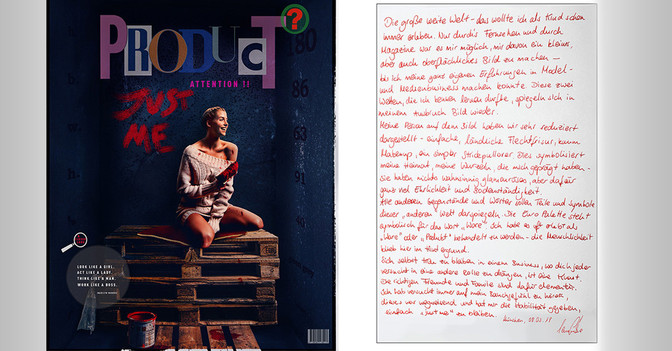 PRODUCT?
ATTENTION !!
JUST
ME
180
86
63
LOOK LIKE A GIRL.
ACT LIKE A LADY.
THINK LIKE A MAN.
WORK LIKE A BOSS.
Die große weite Welt - das wollte ich als Kind schon
immer erleben. Nur durch's Fernsehen und durch
Magazine war es mir möglich, mir davon ein kleines,
aber auch oberflächliches Bild zu machen -
bis ich meine ganz eigenen Erfahrungen im Model-
und Medienbusiness machen konnte. Diese zwei
Welten, die ich kennen lernen durfte, spiegeln sich in
meinem Bild wieder.
Meine Person auf dem Bild haben wir sehr reduziert
dargestellt - einfache, ländliche Flechtfrisur, kaum
Makeup, ein simpler Strickpullover. Dies symbolisiert
meine Heimat, meine Wurzeln, die mich geprägt haben -
sie haben nichts wahnsinnig glamouröses, aber dafür
ganz viel Ehrlichkeit und Bodenständigkeit.
Alle anderen Gegenstände und Wörter sollen Teile und Symbole
dieser "anderen" Welt darspiegeln. Die Euro Palette steht
symbolisch für das Wort "Ware". Ich habe es oft erlebt als
"Ware" oder "Produkt" behandelt zu werden - die Menschlichkeit
blieb hier im Hintergrund.
Sich selbst treu zu bleiben in einem Business, wo dich jeder
versucht in eine andere Rolle zu drängen, ist eine Kunst.
Die richtigen Freunde und Familie sind dafür elementar.
Ich hab versucht immer auf mein Bauchgefühl zu hören,
dieses war wegweisend und hat mir die Stabilität gegeben,
einfach "Just me" zu bleiben.
München,